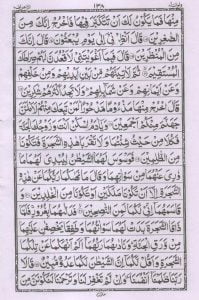 ۱۳۸
مِنْهَا فَمَا يَكُوْنُ لَكَ اَنْ تَتَكَبَّرَ فِيْهَا فَاخْرُجْ اِنَّكَ مِنَ
الصّٰغِرِيْنَ قَالَ اَنْظِرْنِيْۤ اِلٰى يَوْمِ يُبْعَثُوْنَ قَالَ اِنَّكَ
مِنَ الْمُنْظَرِيْنَ قَالَ فَبِمَاۤ اَغْوَيْتَنِيْ لَاَقْعُدَنَّ لَهُمْ صِرَاطَكَ
الْمُسْتَقِيْمَ ثُمَّ لَاٰتِيَنَّهُمْ مِّنْۢ بَيْنِ اَيْدِيْهِمْ وَمِنْ خَلْفِهِمْ
وَعَنْ اَيْمَانِهِمْ وَعَنْ شَمَآئِلِهِمْ وَلَا تَجِدُ اَكْثَرَهُمْ شٰكِرِيْنَ
قَالَ اخْرُجْ مِنْهَا مَذْءُوْمًا مَّدْحُوْرًا لَمَنْ تَبِعَكَ مِنْهُمْ لَاَمْلَئَنَّ
جَهَنَّمَ مِنْكُمْ اَجْمَعِيْنَ وَيٰۤاٰدَمُ اسْكُنْ اَنْتَ وَزَوْجُكَ الْجَنَّةَ
فَكُلَا مِنْ حَيْثُ شِئْتُمَا وَلَا تَقْرَبَا هٰذِهِ الشَّجَرَةَ فَتَكُوْنَا
مِنَ الظّٰلِمِيْنَ فَوَسْوَسَ لَهُمَا الشَّيْطٰنُ لِيُبْدِيَ لَهُمَا مَا
وٗرِيَ عَنْهُمَا مِنْ سَوْاٰتِهِمَا وَقَالَ مَا نَهٰىكُمَا رَبُّكُمَا عَنْ هٰذِهِ
الشَّجَرَةِ اِلَّاۤ اَنْ تَكُوْنَا مَلَكَيْنِ اَوْ تَكُوْنَا مِنَ الْخٰلِدِيْنَ وَ
قَاسَمَهُمَاۤ اِنِّيْ لَكُمَا لَمِنَ النّٰصِحِيْنَ فَدَلّٰىهُمَا بِغُرُوْرٍ فَلَمَّا
ذَاقَا الشَّجَرَةَ بَدَتْ لَهُمَا سَوْاٰتُهُمَا وَطَفِقَا يَخْصِفٰنِ عَلَيْهِمَا
مِنْ وَّرَقِ الْجَنَّةِ وَنَادٰىهُمَا رَبُّهُمَاۤ اَلَمْ اَنْهَكُمَا عَنْ تِلْكُمَا
الشَّجَرَةِ وَاَقُلْ لَّكُمَاۤ اِنَّ الشَّيْطٰنَ لَكُمَا عَدُوٌّ مُّبِيْنٌ قَالَا
رَبَّنَا ظَلَمْنَاۤ اَنْفُسَنَا وَاِنْ لَّمْ تَغْفِرْ لَنَا وَتَرْحَمْنَا لَنَكُوْنَنَّ مِنَ